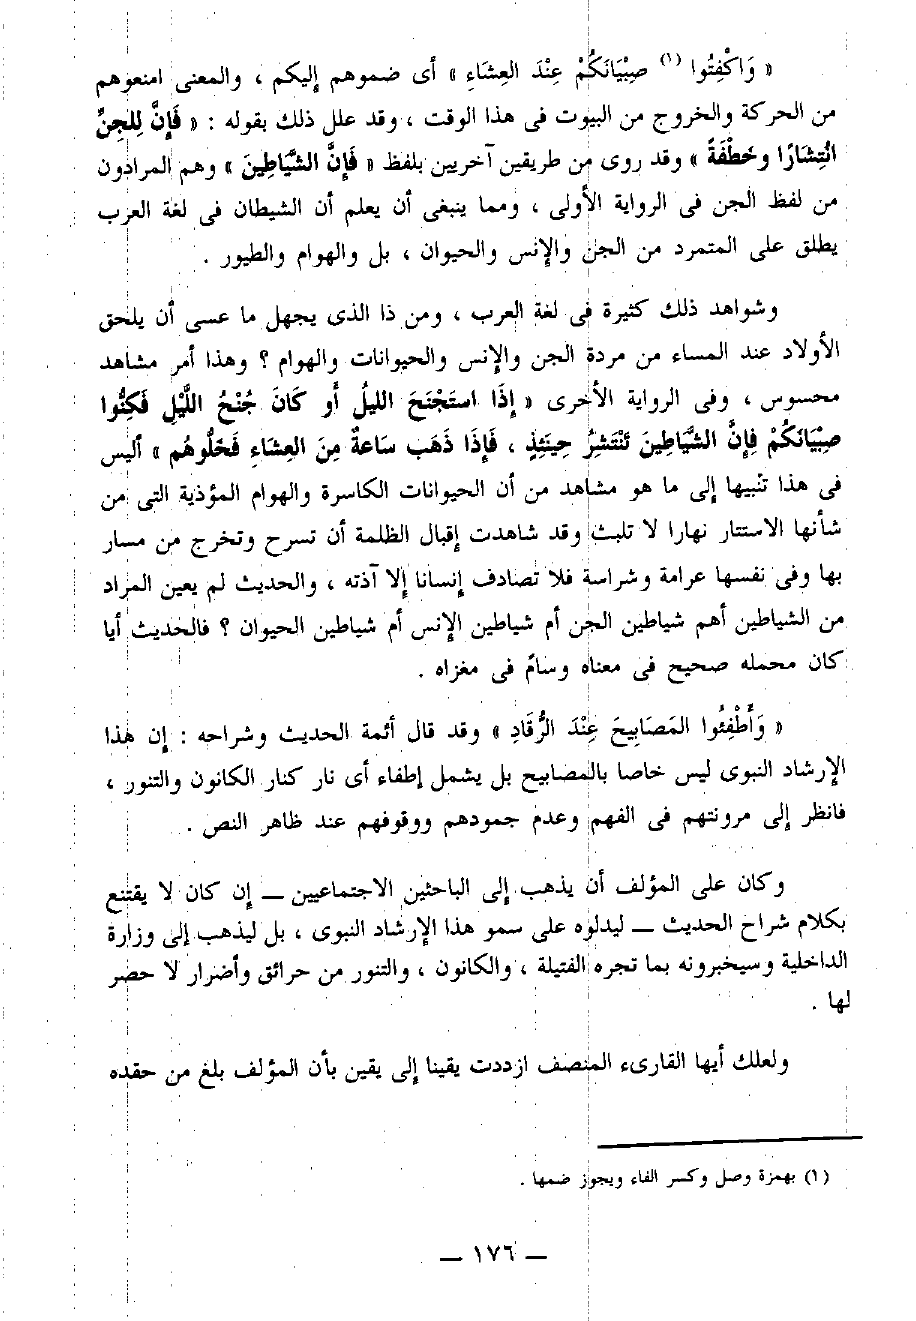 « وَاكْفِتُوا (١) صِبْيَانَكُمْ عِنْدَ العِشَاءِ » أى ضموهم إليكم ، والمعنى امنعوهم
من الحركة والخروج من البيوت فى هذا الوقت ، وقد علل ذلك بقوله : « فَإِنَّ لِلجِنِّ
انْتِشَارًا وخَطْفَةً » وقد روى من طريقين آخريين بلفظ « فَإِنَّ الشَّيَاطِينَ » وهم المرادون
من لفظ الجن فى الرواية الأولى ، ومما ينبغى أن يعلم أن الشيطان فى لغة العرب
يطلق على المتمرد من الجن والإنس والحيوان ، بل والهوام والطيور .
وشواهد ذلك كثيرة فى لغة العرب ، ومن ذا الذى يجهل ما عسى أن يلحق
الأولاد عند المساء من مردة الجن والإنس والحيوانات والهوام ؟ وهذا أمر مشاهد
محسوس ، وفى الرواية الأخرى « إِذَا استَجْنَحَ الليلُ أو كَانَ جُنْحُ اللَّيْلِ فَكفُّوا
صِبْيَانَكُمْ فإِنَّ الشَّيَاطِينَ تَنْتَشِرُ حِينَئِذٍ ، فَإذَا ذَهَب سَاعةٌ مِنَ العِشَاءِ فَخلُّوهُم » أليس
فى هذا تنبيها إلى ما هو مشاهد من أن الحيوانات الكاسرة والهوام المؤذية التى من
شأنها الاستتار نهارا لا تلبث وقد شاهدت إقبال الظلمة أن تسرح وتخرج من مسار
بها وفى نفسها عرامة وشراسة فلا تصادف إنسانا إلا آذته ، والحديث لم يعين المراد
من الشياطين أهم شياطين الجن أم شياطين الإنس أم شياطين الحيوان ؟ فالحديث أيا
كان محمله صحيح فى معناه وسامً فى مغزاه .
« وَأَطْفِئُوا المَصَابِيحَ عِنْدَ الرُّقَادِ » وقد قال أئمة الحديث وشراحه : إن هذا
الإرشاد النبوى ليس خاصا بالمصابيح بل يشمل إطفاء أى نار كنار الكانون والتنور ،
فانظر إلى مرونتهم فى الفهم وعدم جمودهم ووقوفهم عند ظاهر النص .
وكان على المؤلف أن يذهب إلى الباحثين الاجتماعيين ــ إن كان لا يقتنع
بكلام شراح الحديث ــ ليدلوه على سمو هذا الإرشاد النبوى ، بل ليذهب إلى وزارة
الداخلية وسيخبرونه بما تجره الفتيلة ، والكانون ، والتنور من حرائق وأضرار لا حصر
لها .
ولعلك أيها القارىء المنصف ازددت يقينا إلى يقين بأن المؤلف بلغ من حقده
(١) بهمزة وصل وكسر الفاء ويجوز ضمها .
ــ ١٧٦ ــ